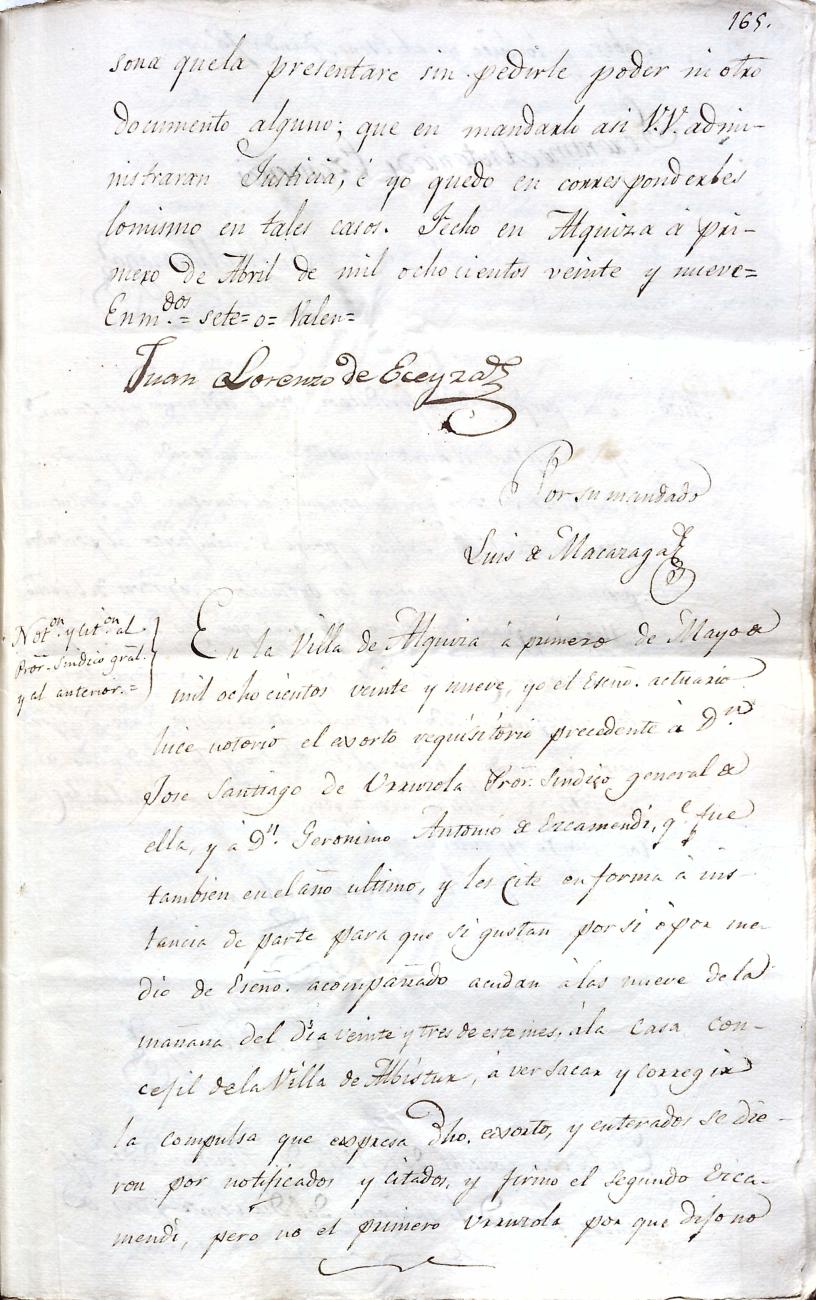 165.
sona quela presentare sin pedirle poder ni otro
documento alguno; que en mandarlo asi V.V. admi-
nistraran Justicia, é yo quedo en corresponderles
lomismo en tales casos. Fecho en Alquiza á pri-
mero de Abril de mil ochocientos veinte y nueve=
Enm.dos= sete= o= Valen=
Juan Lorenzo de Eceyza
Por su mandado
Luis de Macazaga
Not.on y cit.on al
Pror. Sindico gral.
y al anterior.=
En la Villa de Alquiza á primero de Mayo de
mil ochocientos veinte y nueve, yo el Escño. actuario
hice notorio el exorto requisitorio precedente à D.n
Jose Santiago de Urruzola Pror. Sindico general de
ella, y à D.n Geronimo Antonio de Ezcamendi, q.e fue
tambien en el año ultimo, y les cite en forma à ins-
tancia de parte para que si gustan por si ò por me-
dio de Escño. acompañado acudan à las nueve de la
mañana del dia veinte y tres de este mes, àla Casa Con-
cejil dela Villa de Albistur, à ver sacar y corregir
la compulsa que expresa dho. exorto, y enterados se die-
ron por notificados y citados, y firmo el segundo Ezca-
mendi, pero no el primero Urruzola por que dijo no